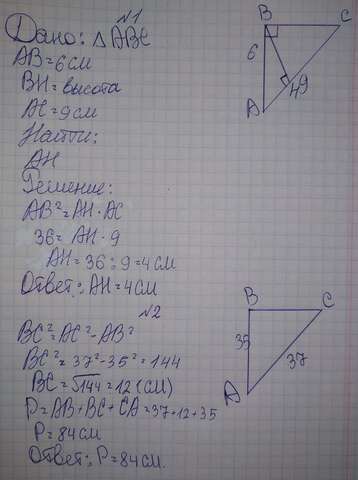 №1
Дано: △ABC
AB=6см
BH=высота
AC=9см
Найти:
AH
Решение:
AB²=AH·AC
36=AH·9
AH=36:9=4см
Ответ: AH=4см
B
C
6
H
9
A
№2
BC²=AC²-AB²
BC²=37²-35²=144
BC=√144=12(см)
P=AB+BC+CA=37+12+35
P=84см
Ответ: P=84см.
B
C
35
37
A